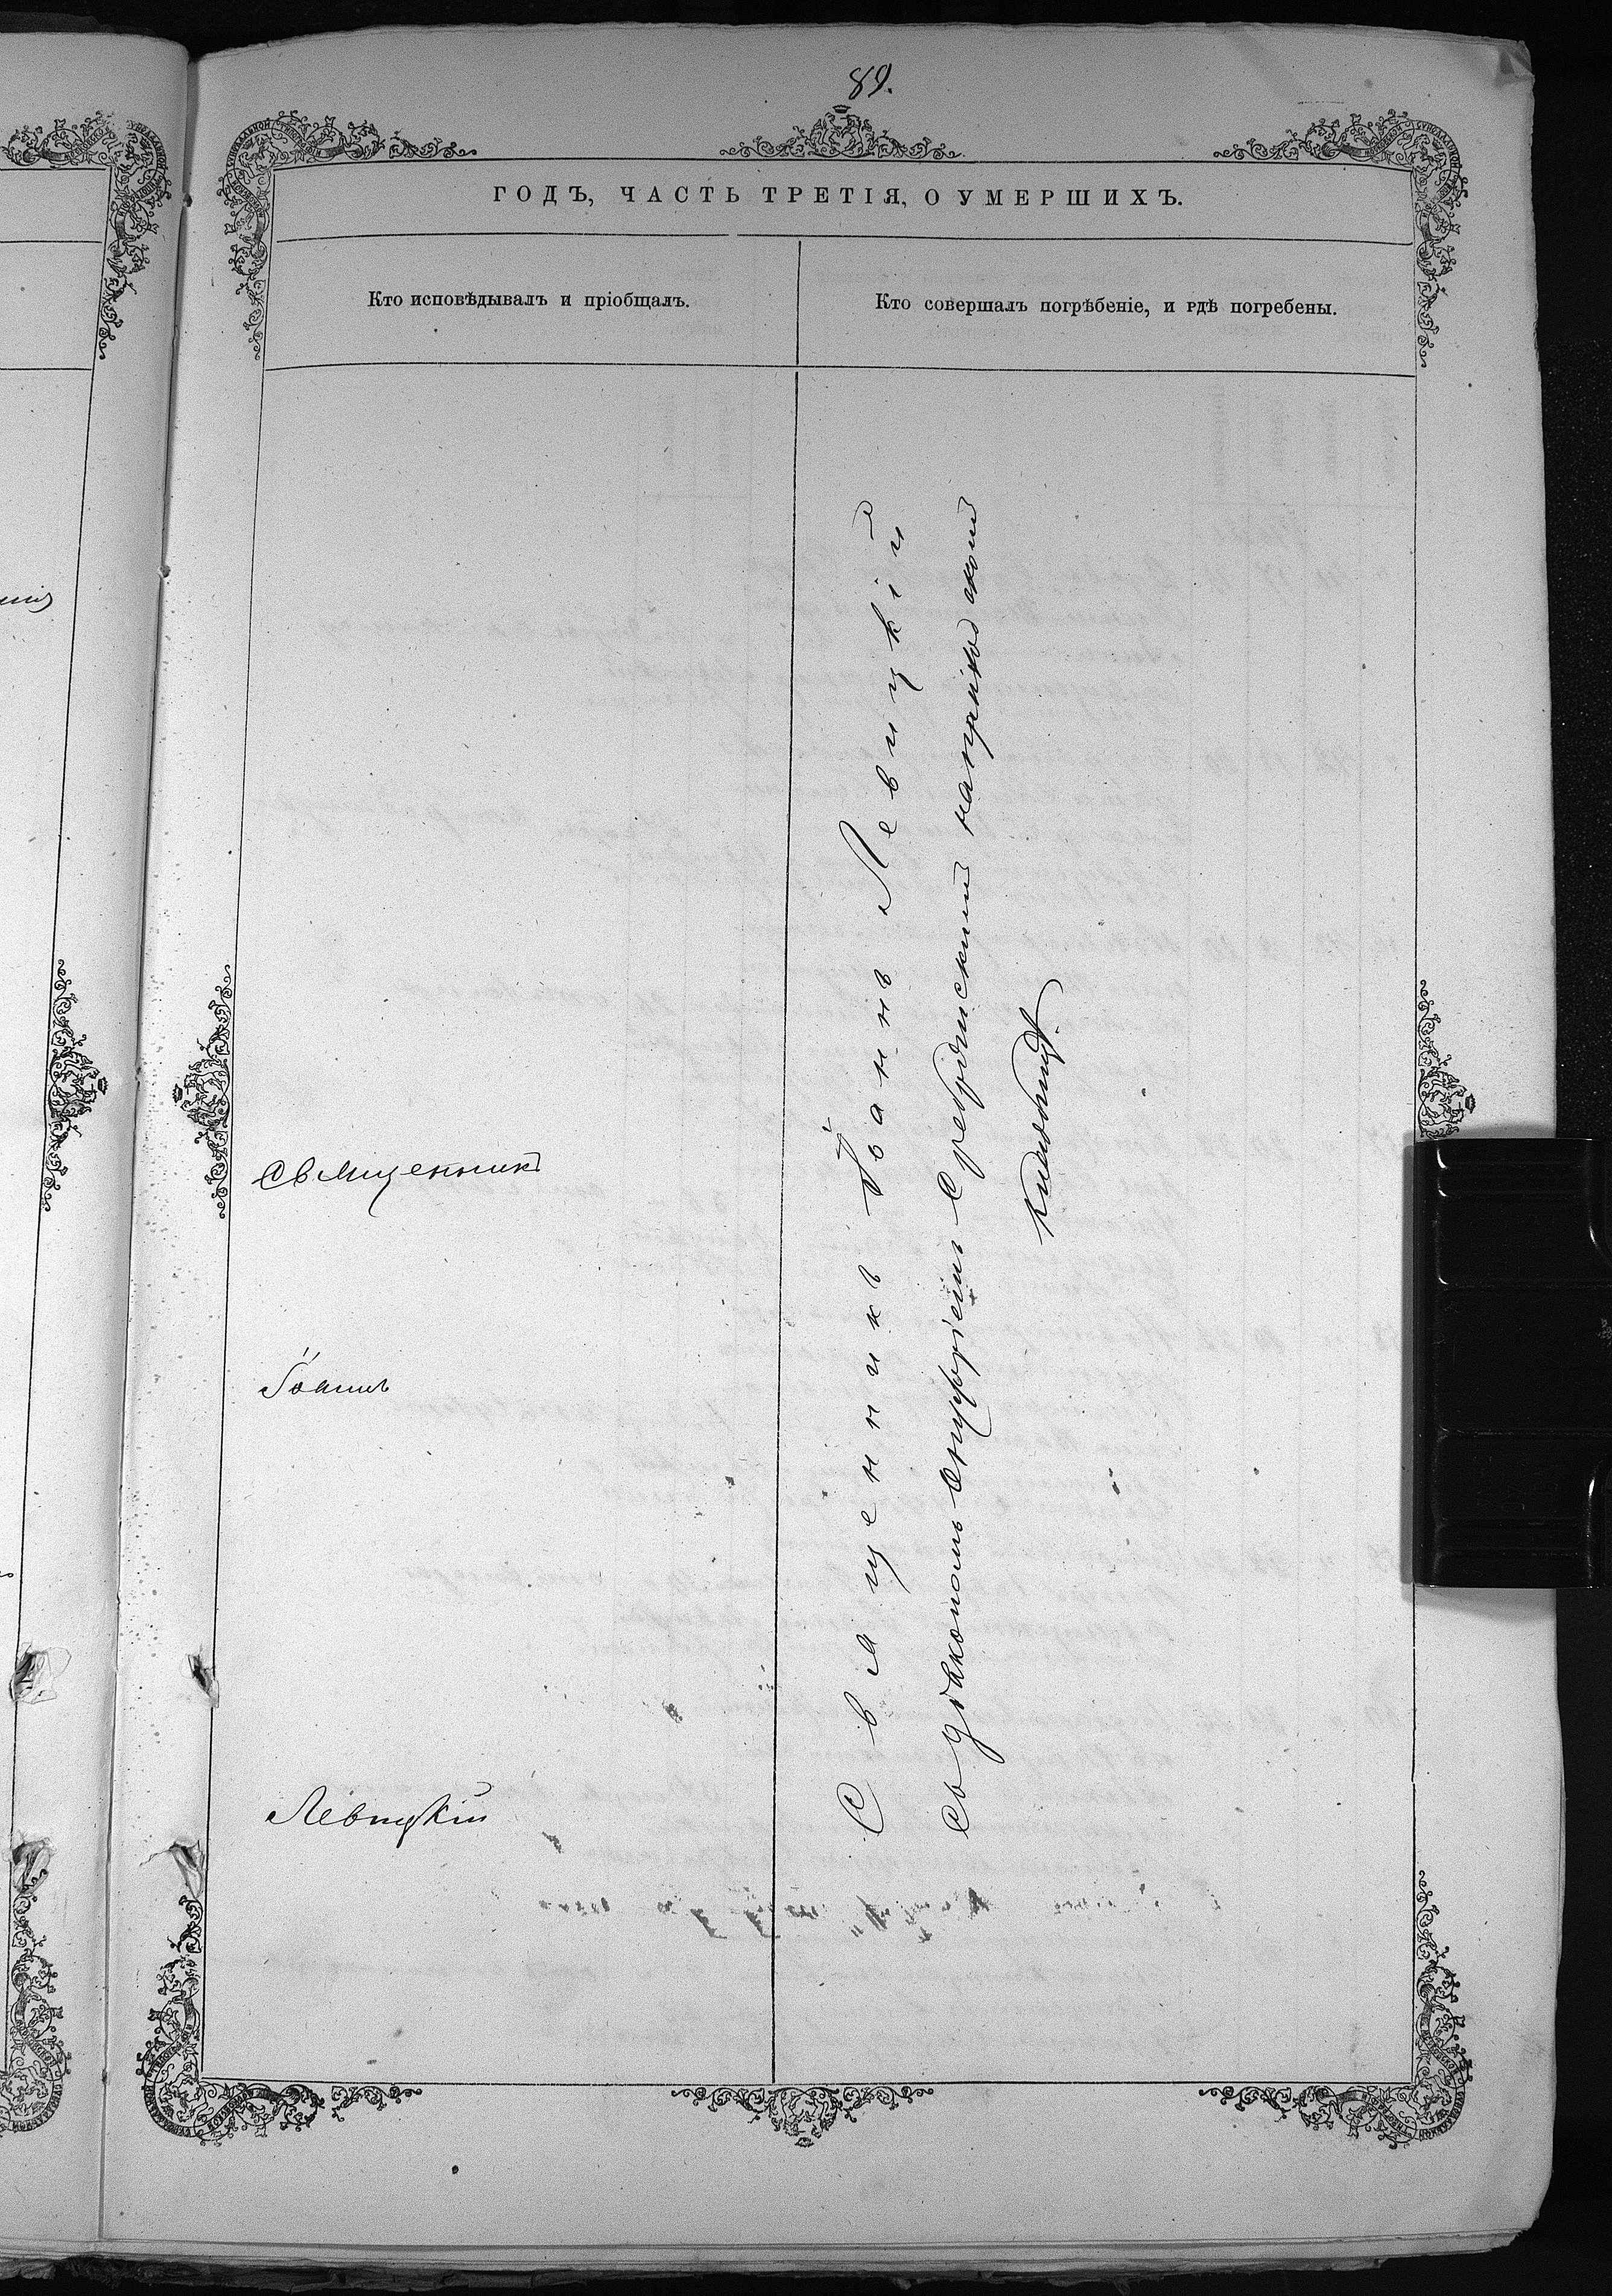 89.
ГОДЪ, ЧАСТЬ ТРЕТІЯ, О УМЕРШИХЪ.
Кто исповѣдывалъ и пріобщалъ.
Кто совершалъ погрѣбеніе, и гдѣ погребены.
Священникъ
Іоаннъ
Левицкій
Священникъ Іоаннъ Левицкій
съ дьякономъ Онуфріемъ на приходскомъ
кладбищѣ.